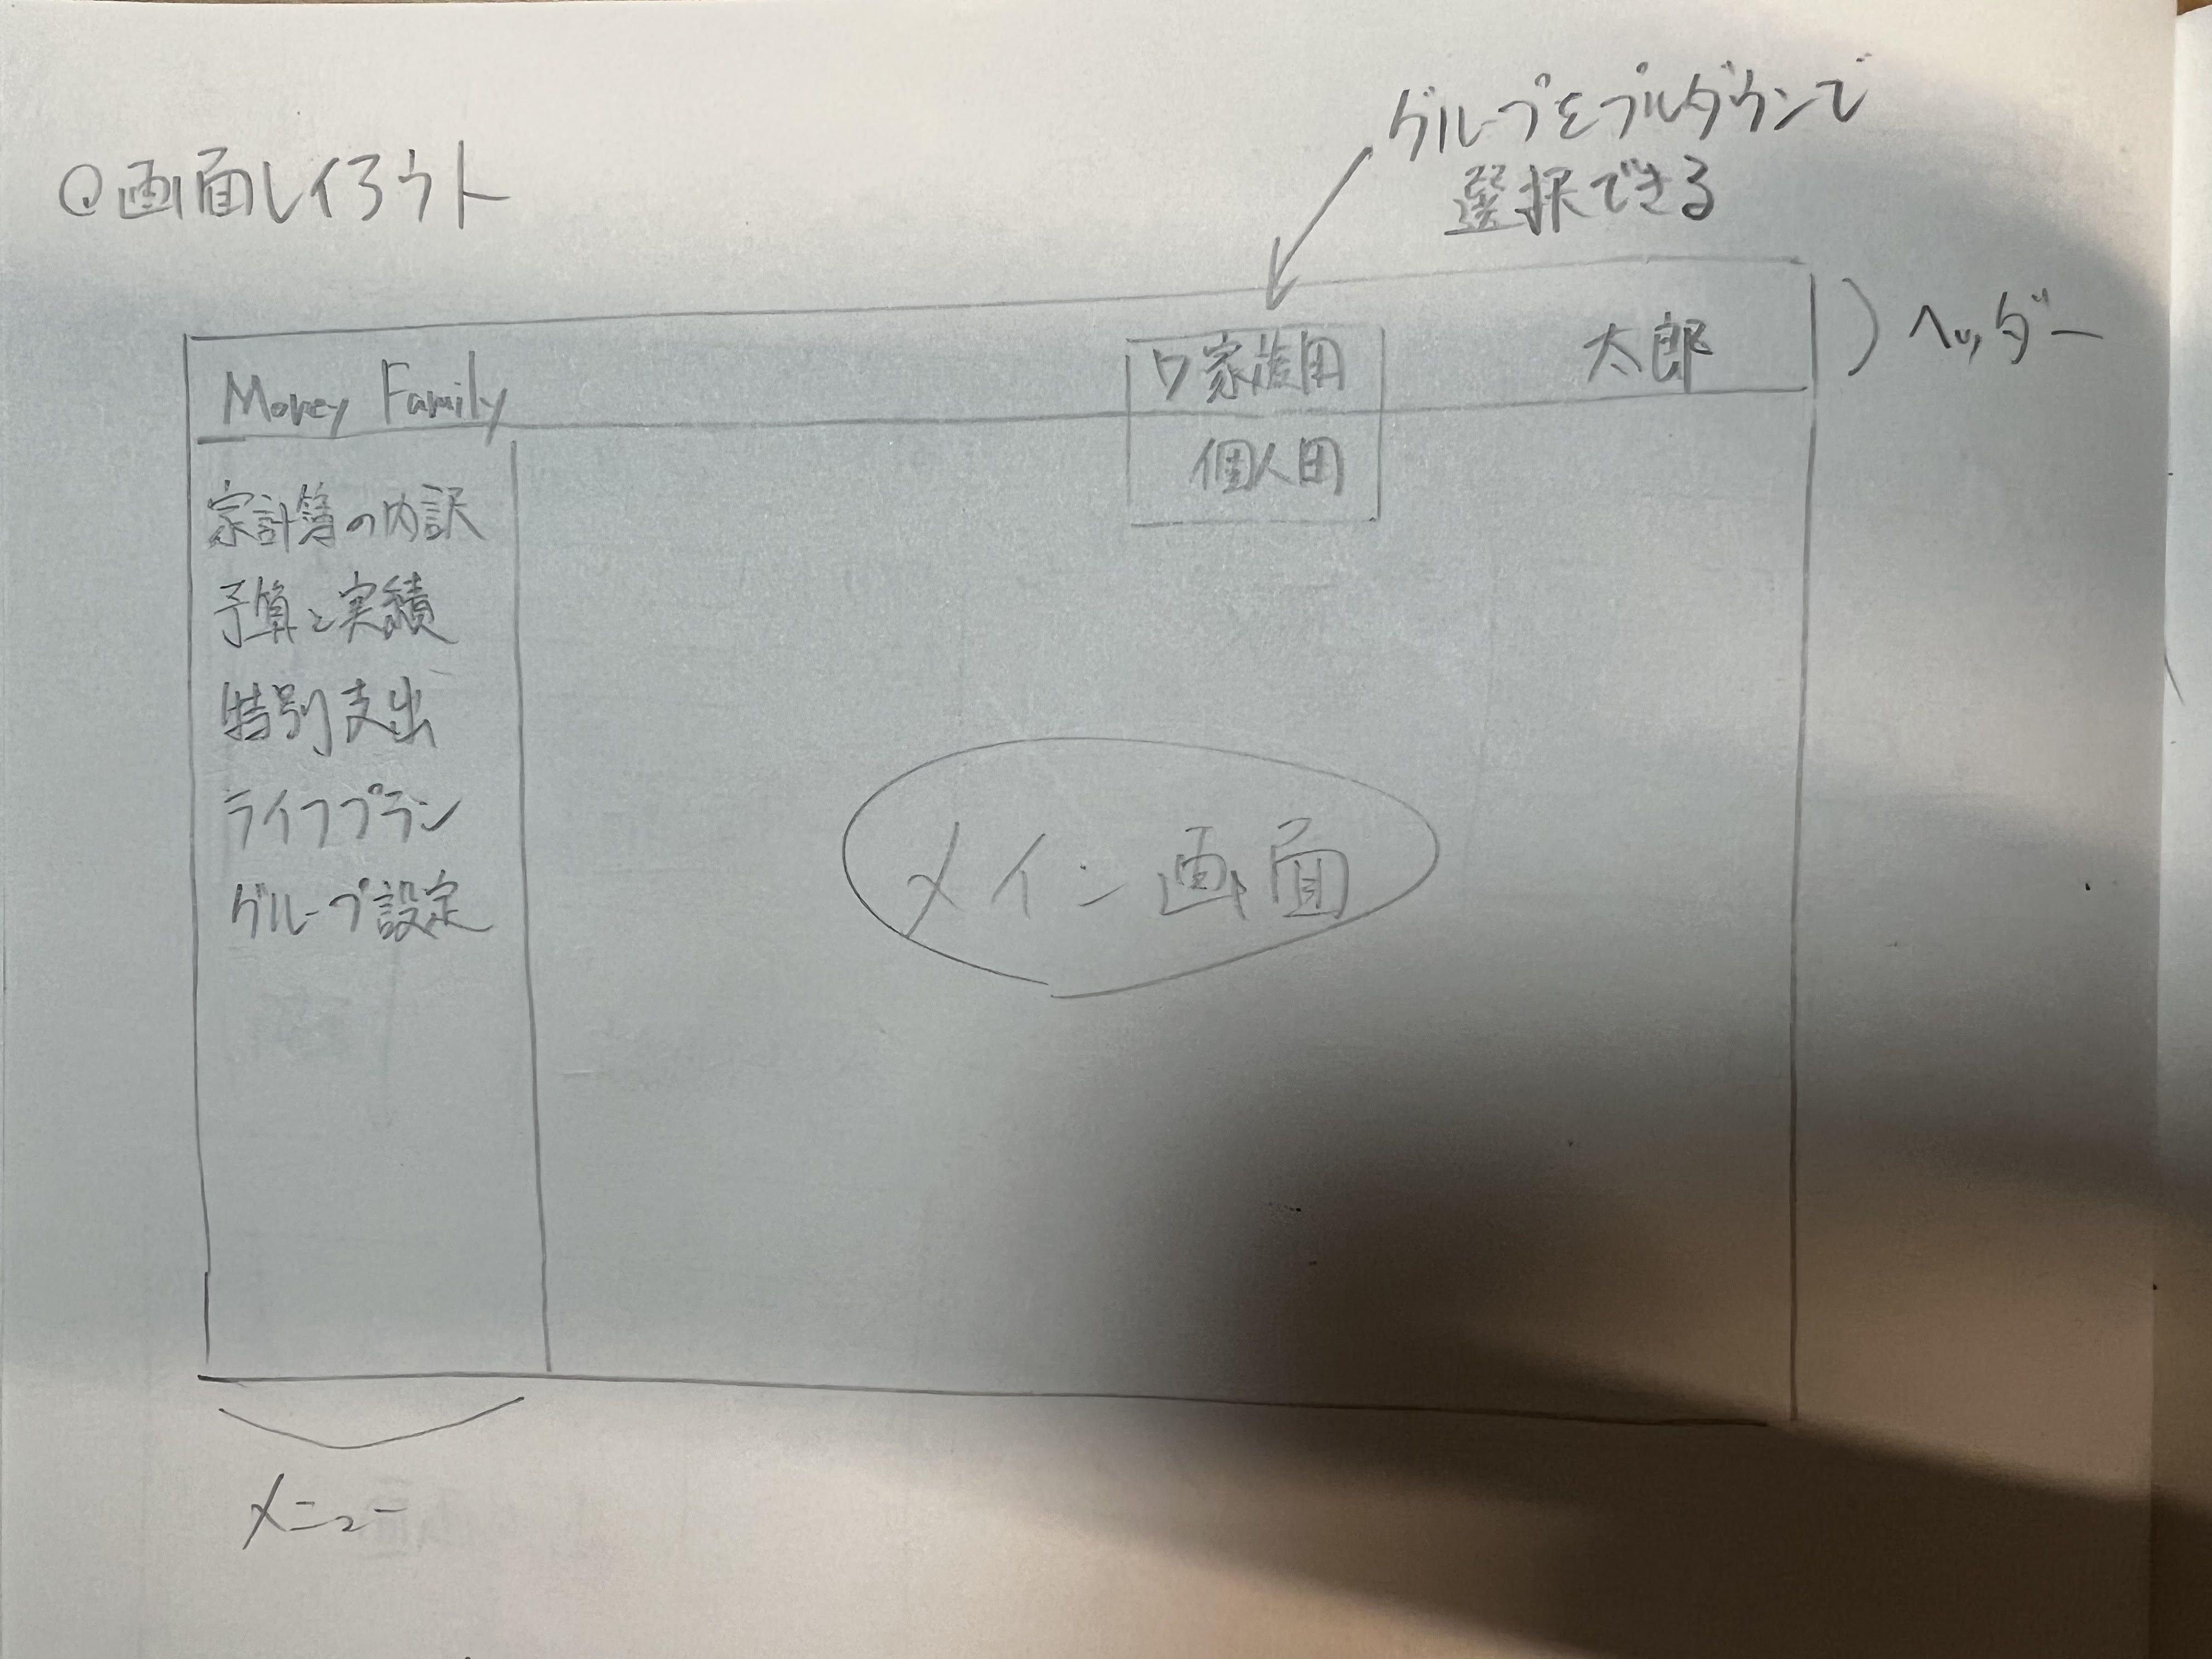 画面レイアウト
グループをプルダウンで
選択できる
Money Family
▽家族用
太郎
ヘッダー
個人用
家計簿の内訳
予算と実績
特別支出
ライフプラン
グループ設定
メイン画面
メニュー